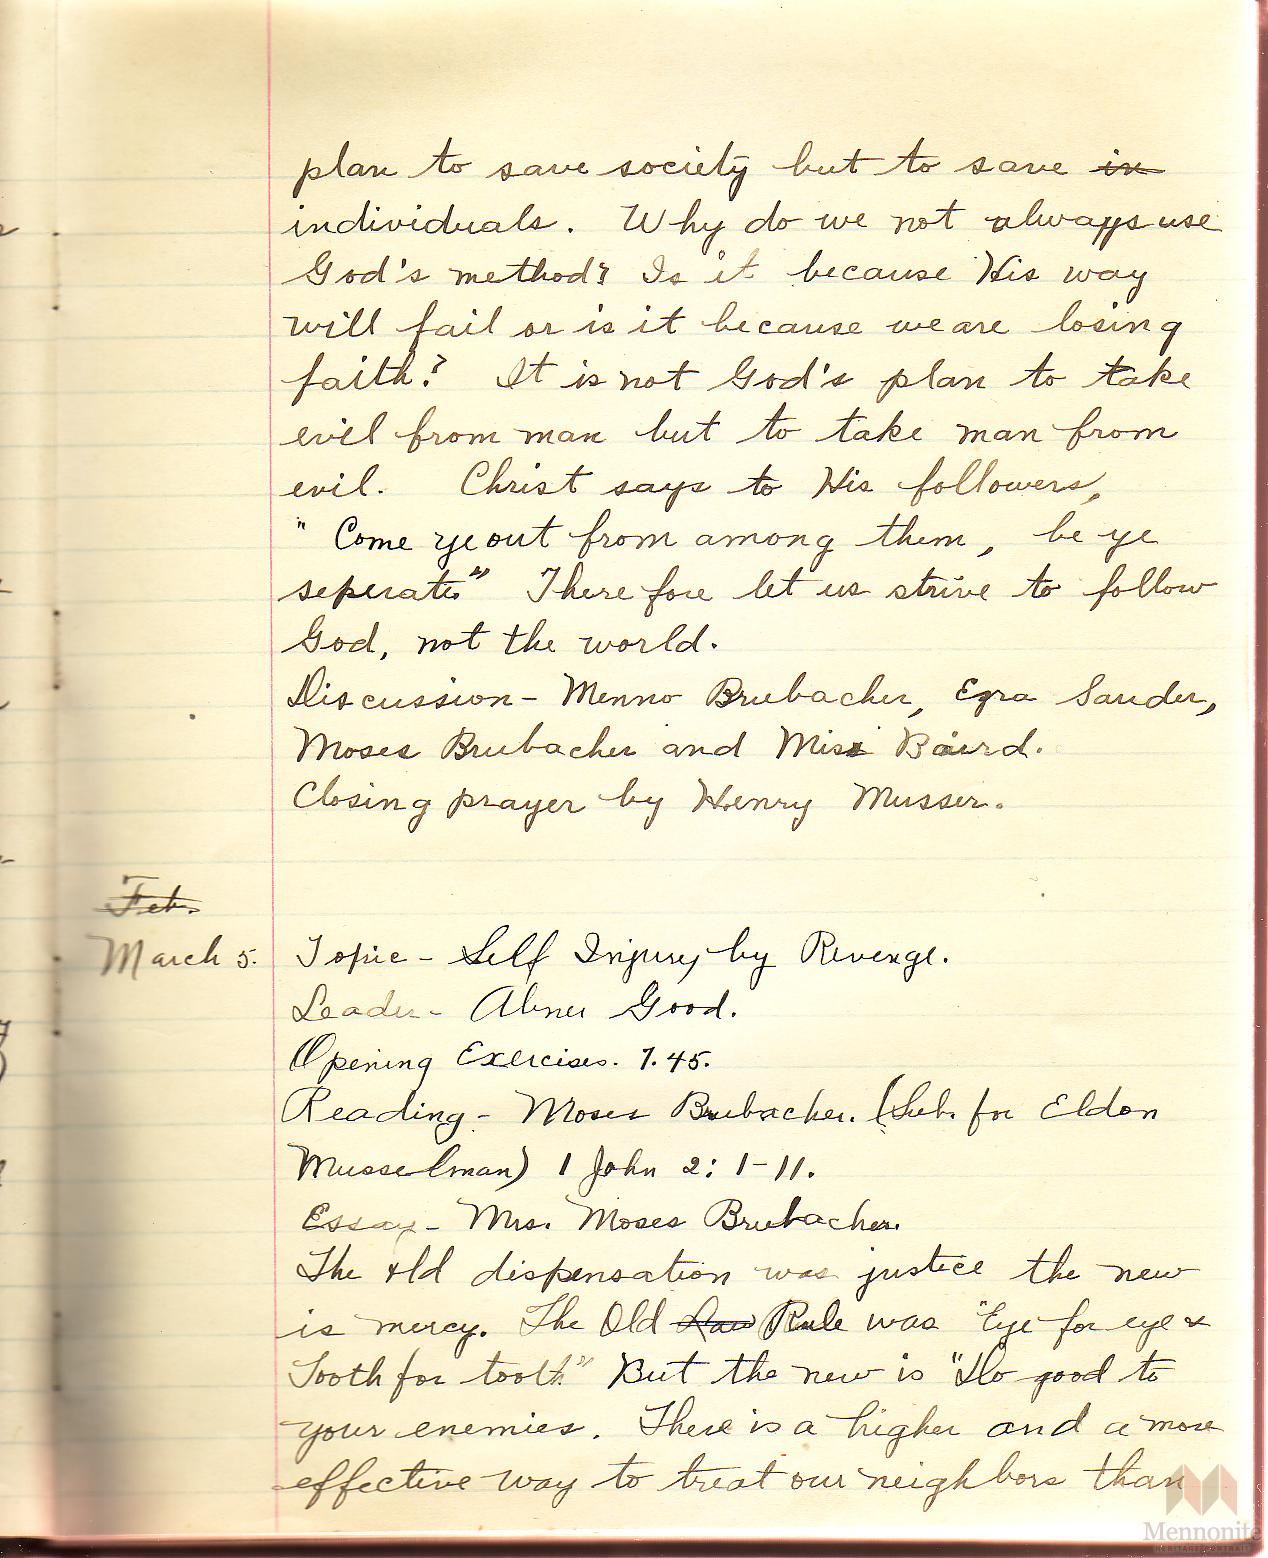 plan to save society but to save in
individuals. Why do we not always use
God's method? Is it because His way
will fail or is it because we are losing
faith? It is not God's plan to take
evil from man but to take man from
evil. Christ says to His followers,
" Come ye out from among them, be ye
seperate." There fore let us strive to follow
God, not the world.
Discussion - Menno Brubacher, Ezra Sauder,
Moses Brubacher and Miss Baird.
Closing prayer by Henry Musser.
Feb.
March 5. Topic - Self Injury by Revenge.
Leader - Abner Good.
Opening Exercises. 7.45.
Reading - Moses Brubacher. (Sub. for Eldon
Musselman) 1 John 2: 1-11.
Essay - Mrs. Moses Brubacher.
The old dispensation was justice the new
is mercy. The Old Law Rule was "Eye for eye &
Tooth for tooth" But the new is "Do good to
your enemies. There is a higher and a more
effective way to treat our neighbors than
Mennonite